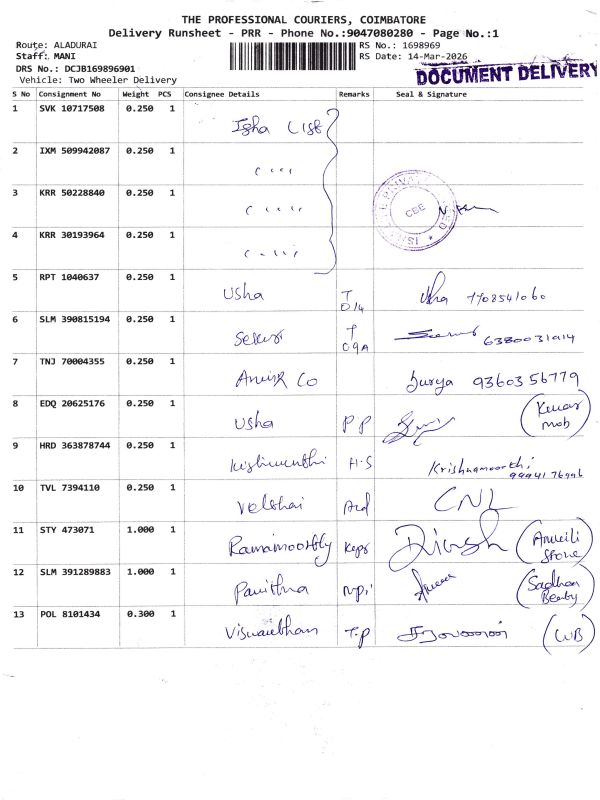 THE PROFESSIONAL COURIERS, COIMBATORE
Delivery Runsheet - PRR - Phone No.:9047080280 - Page No.:1
Route: ALADURAI RS No.: 1698969
Staff: MANI RS Date: 14-Mar-2026
DRS No.: DCJB169896901
Vehicle: Two Wheeler Delivery
DOCUMENT DELIVERY
S No Consignment No Weight PCS Consignee Details Remarks Seal & Signature
1 SVK 10717508 0.250 1 Isha
2 IXM 509942087 0.250 1
3 KRR 50228840 0.250 1 CEE
4 KRR 30193964 0.250 1
5 RPT 1040637 0.250 1 Usha T Usha 7708541060
6 SLM 390815194 0.250 1 T 6380031914
7 TNJ 70004355 0.250 1 Co Surya 93603 56779
8 EDQ 20625176 0.250 1 Usha PP (Kumar mob)
9 HRD 363878744 0.250 1 H.S Krishnamoorthi
10 TVL 7394110 0.250 1 CNL
11 STY 473071 1.000 1 Ramamoorthy Dinesh
12 SLM 391289883 1.000 1 Pavithra
13 POL 8101434 0.300 1 T.P (WB)